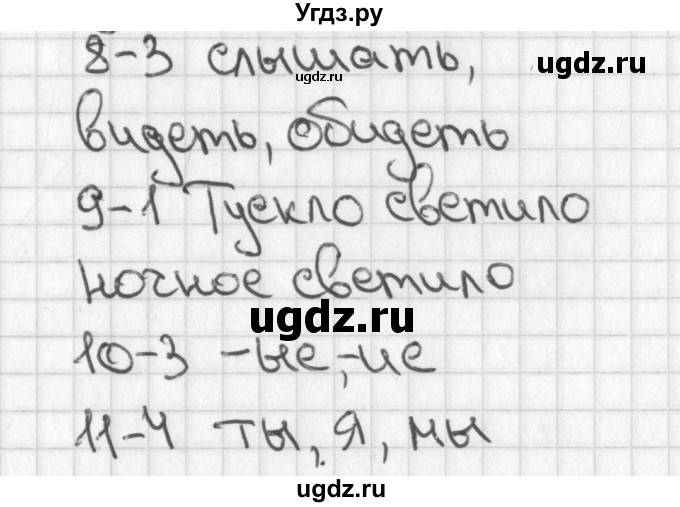 Угдз.ру
8-3 слышать,
ugdz.ru
ugdz.ru
видеть, обидеть
9-1 Тускло светило
ночное светило
ugdz.ru
10-3 -ые, -ие
11-4 ты, я, мы
ugdz.ru